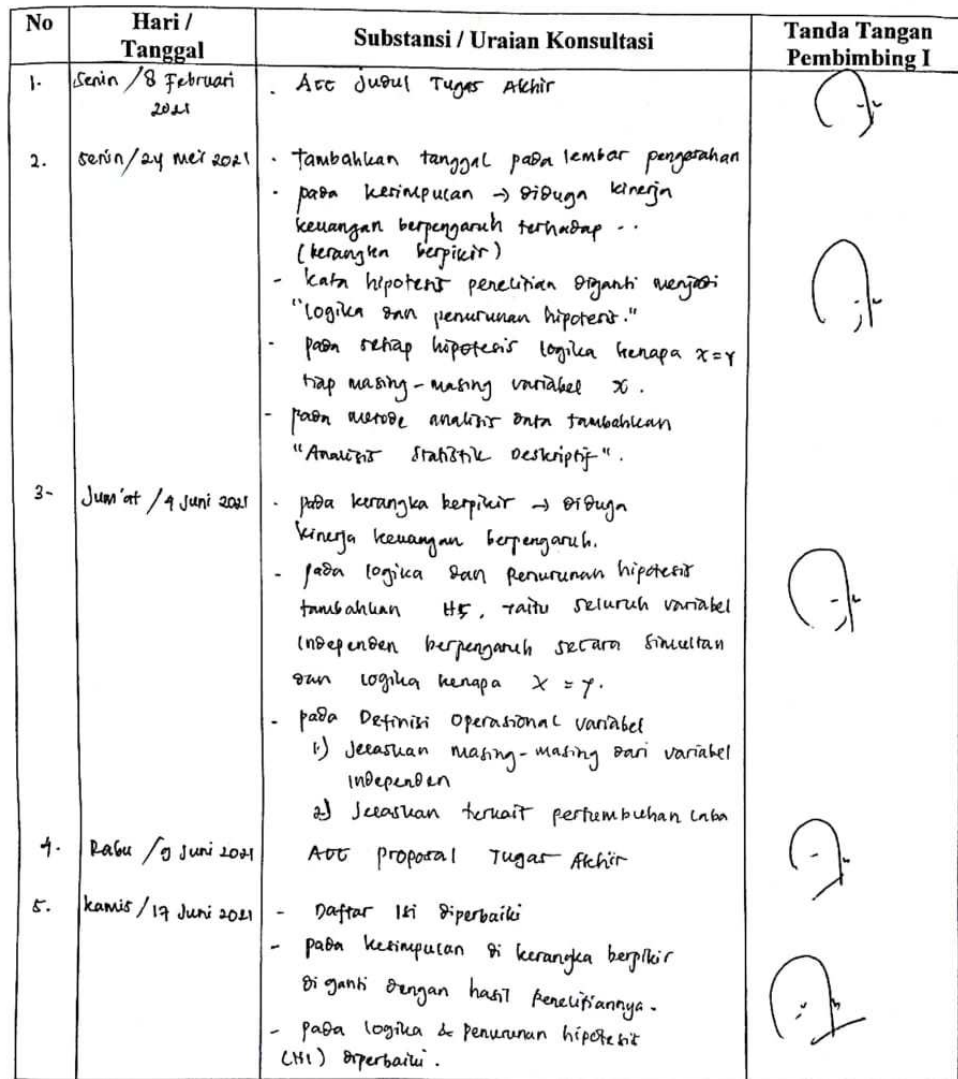 No
Hari / Tanggal
Substansi / Uraian Konsultasi
Tanda Tangan Pembimbing I
1. Senin / 8 Februari 2021
. Acc Judul Tugas Akhir
2. Senin / 24 Mei 2021
. Tambahkan tanggal pada lembar pengesahan
- pada kesimpulan → diduga kinerja
keuangan berpengaruh terhadap ..
(kerangka berpikir)
- kata hipotesis penelitian diganti menjadi
"Logika dan penurunan hipotesis."
- pada setiap hipotesis logika kenapa x=y
tiap masing-masing variabel x.
- pada metode analisis data tambahkan
"Analisis Statistik Deskriptif".
3- Jum'at / 4 Juni 2021
- pada kerangka berpikir → diduga
kinerja keuangan berpengaruh.
- pada logika dan Penurunan hipotesis
tambahkan H5, yaitu seluruh variabel
independen berpengaruh secara simultan
dan logika kenapa x = y.
- pada Definisi Operasional variabel
1) Jelaskan masing-masing dari variabel
independen
2) Jelaskan terkait pertumbuhan laba
4. Rabu / 9 Juni 2021
Acc proposal Tugas Akhir
5. Kamis / 17 Juni 2021
- Daftar Isi diperbaiki
- pada kesimpulan di kerangka berpikir
di ganti dengan hasil penelitiannya.
- pada logika & penurunan hipotesis
(H1) diperbaiki.